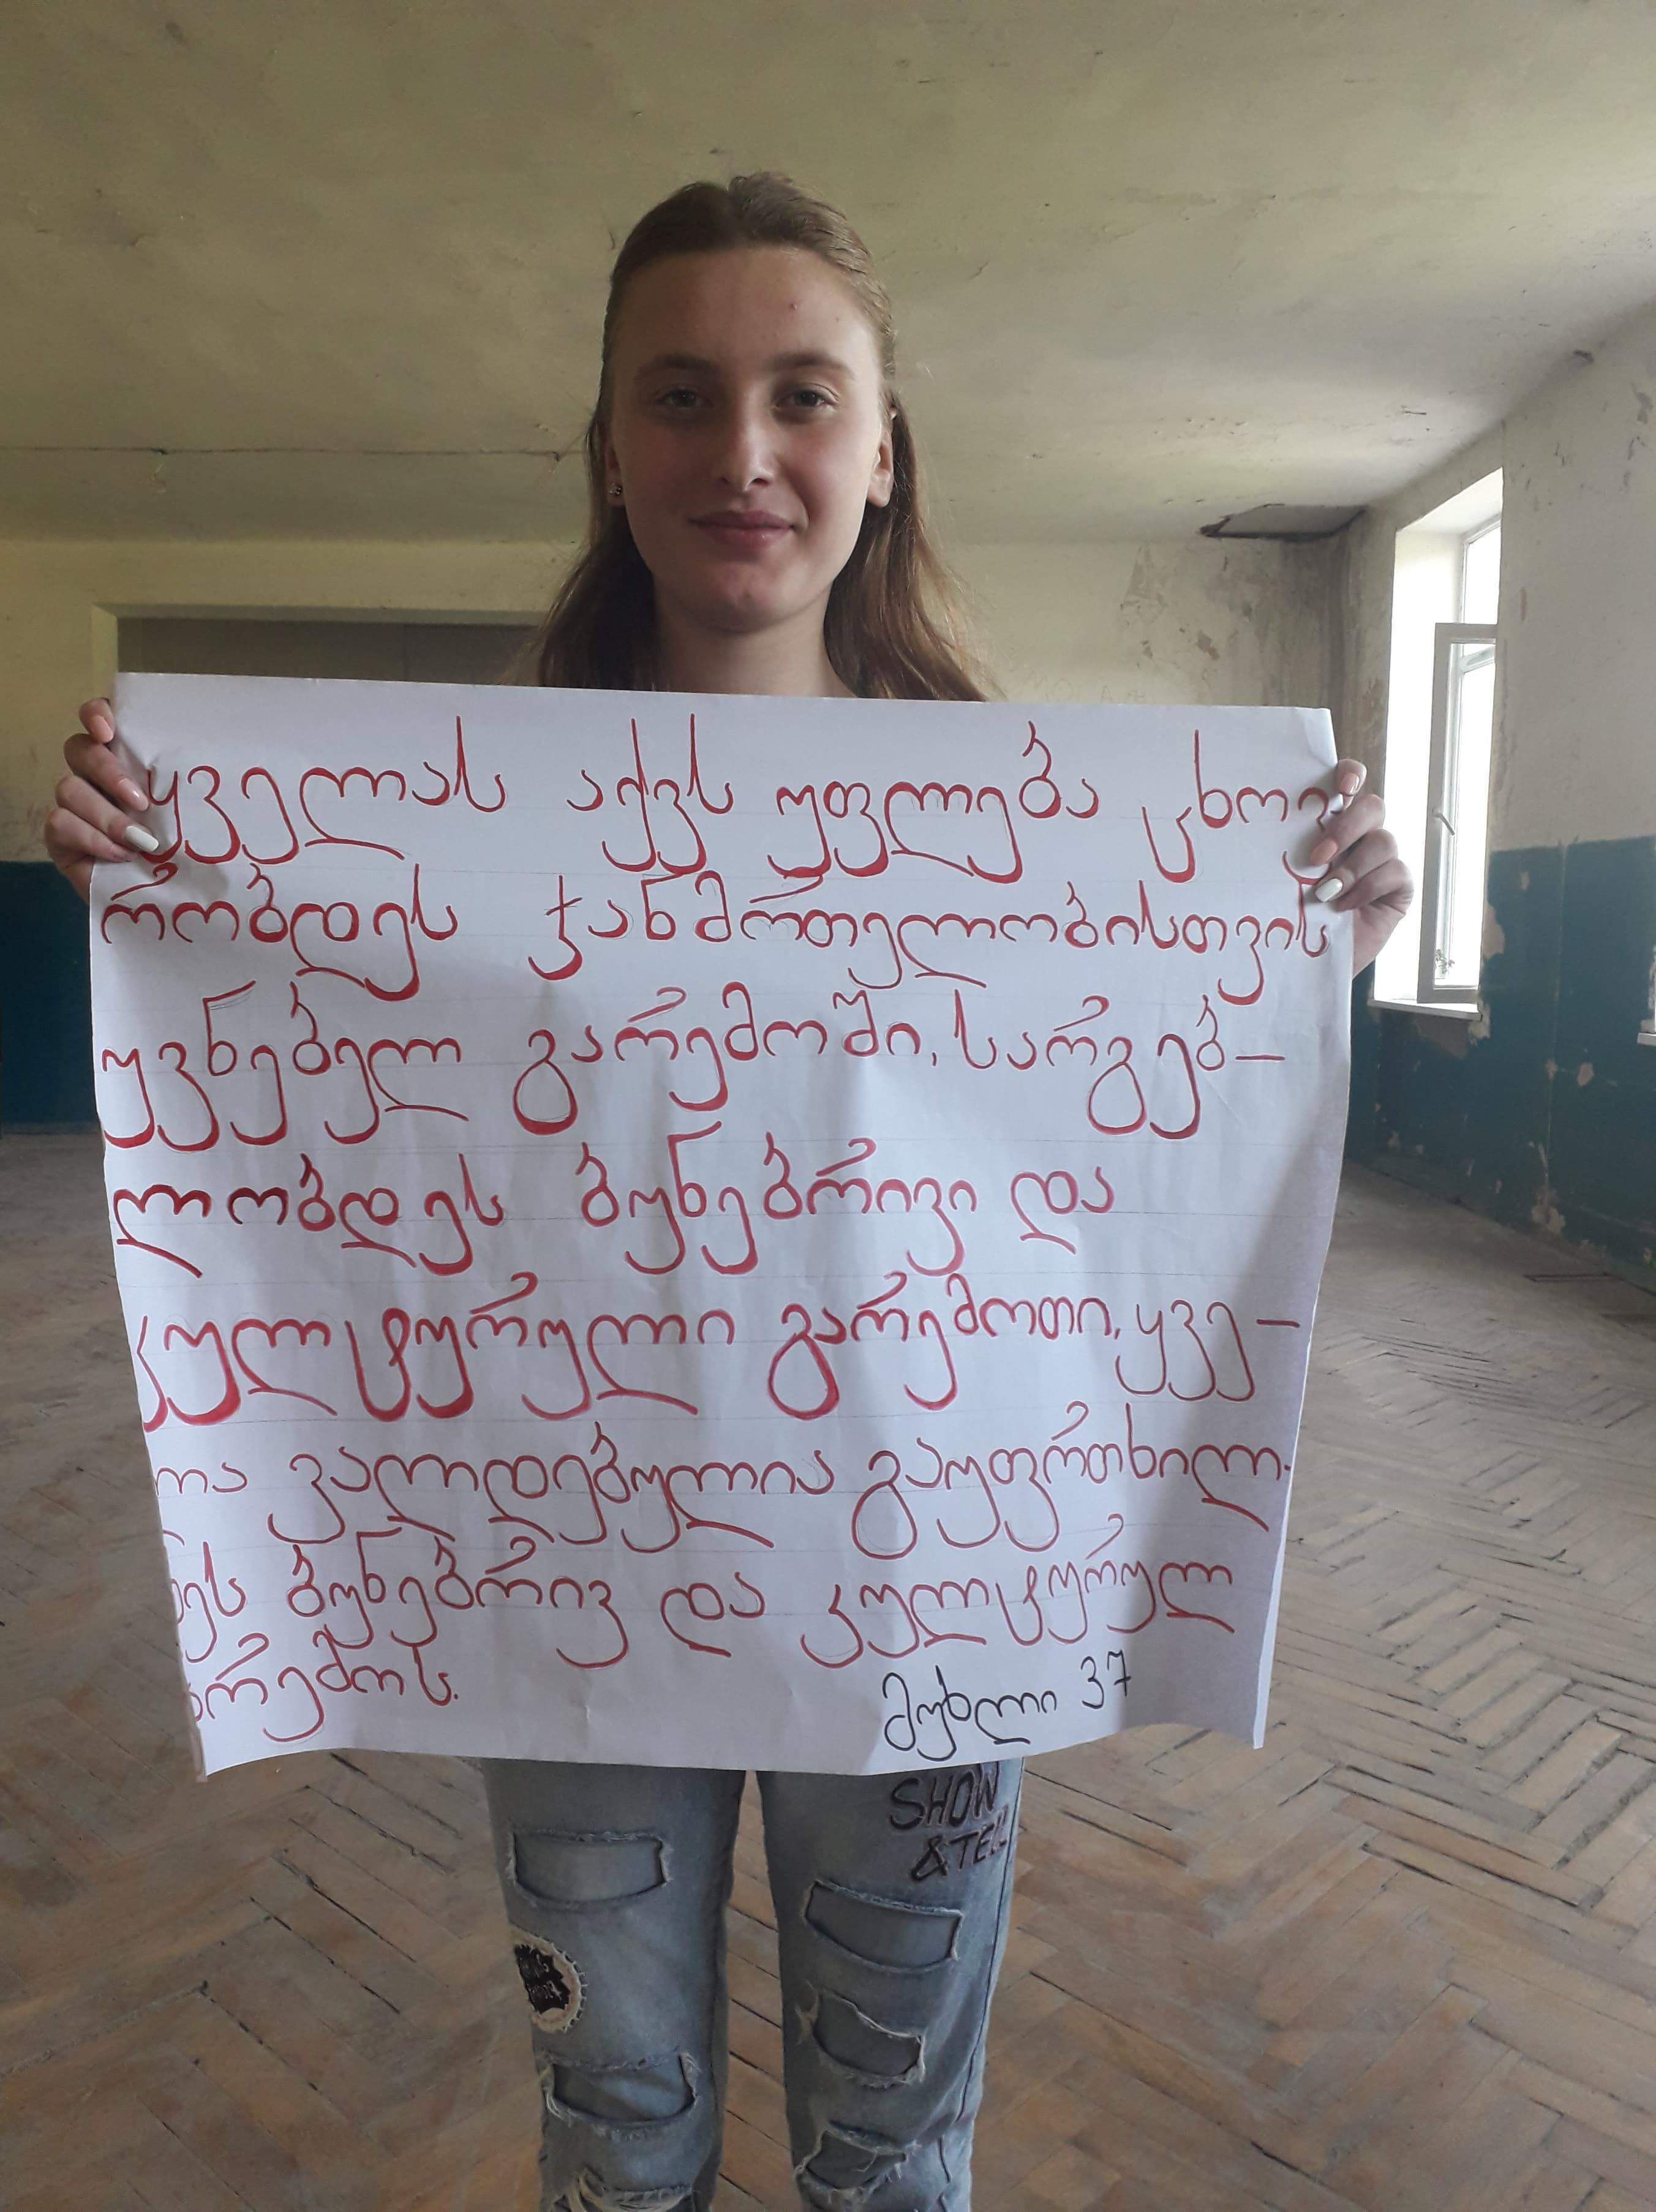 ყველას აქვს უფლება ცხოვ
რობდეს ჯანმრთელობისთვის
უვნებელ გარემოში, სარგებ-
ლობდეს ბუნებრივი და
კულტურული გარემოთი, ყვე-
ლა ვალდებულია გაუფრთხილ-
დეს ბუნებრივ და კულტურულ
გარემოს.
მუხლი 37
SHOW
&TELL